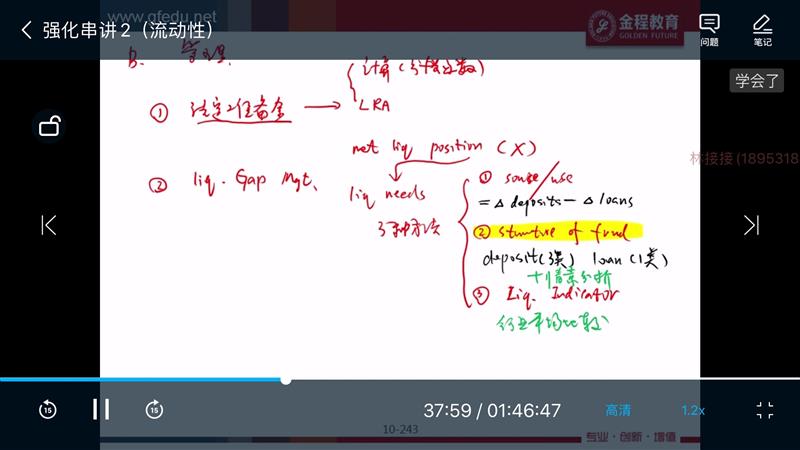 www.gfedu.net
强化串讲2（流动性）
金程教育
GOLDEN FUTURE
问题
笔记
学会了
B. 管理
① 法定准备金 → 计算（计算过数）
LRA
林接接 (1895318
net liq position (X)
② liq. Gap Mgt、
liq needs
3种方法
① source/use
= Δ deposits - Δ loans
② structure of fund
deposit(3类) loan(1类)
③ Liq. Indicator
行业平均比较
15
15
37:59 / 01:46:47
高清
1.2x
10-243
专业·创新·增值